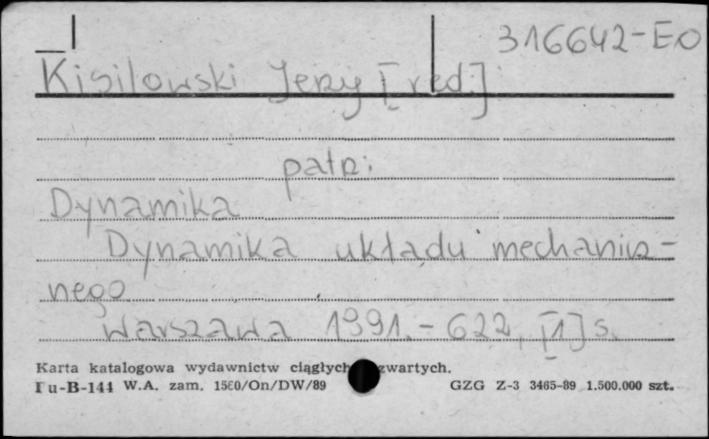 316642-E.O
Kisilowski Jerzy [red.]
patrz:
Dynamika
Dynamika układu mechanicz-
nego
Warszawa 1991. - 622, [1] s.
Karta katalogowa wydawnictw ciągłych zwartych.
Pu-B-144 W.A. zam. 1580/On/DW/89 GZG Z-3 3465-89 1.500.000 szt.